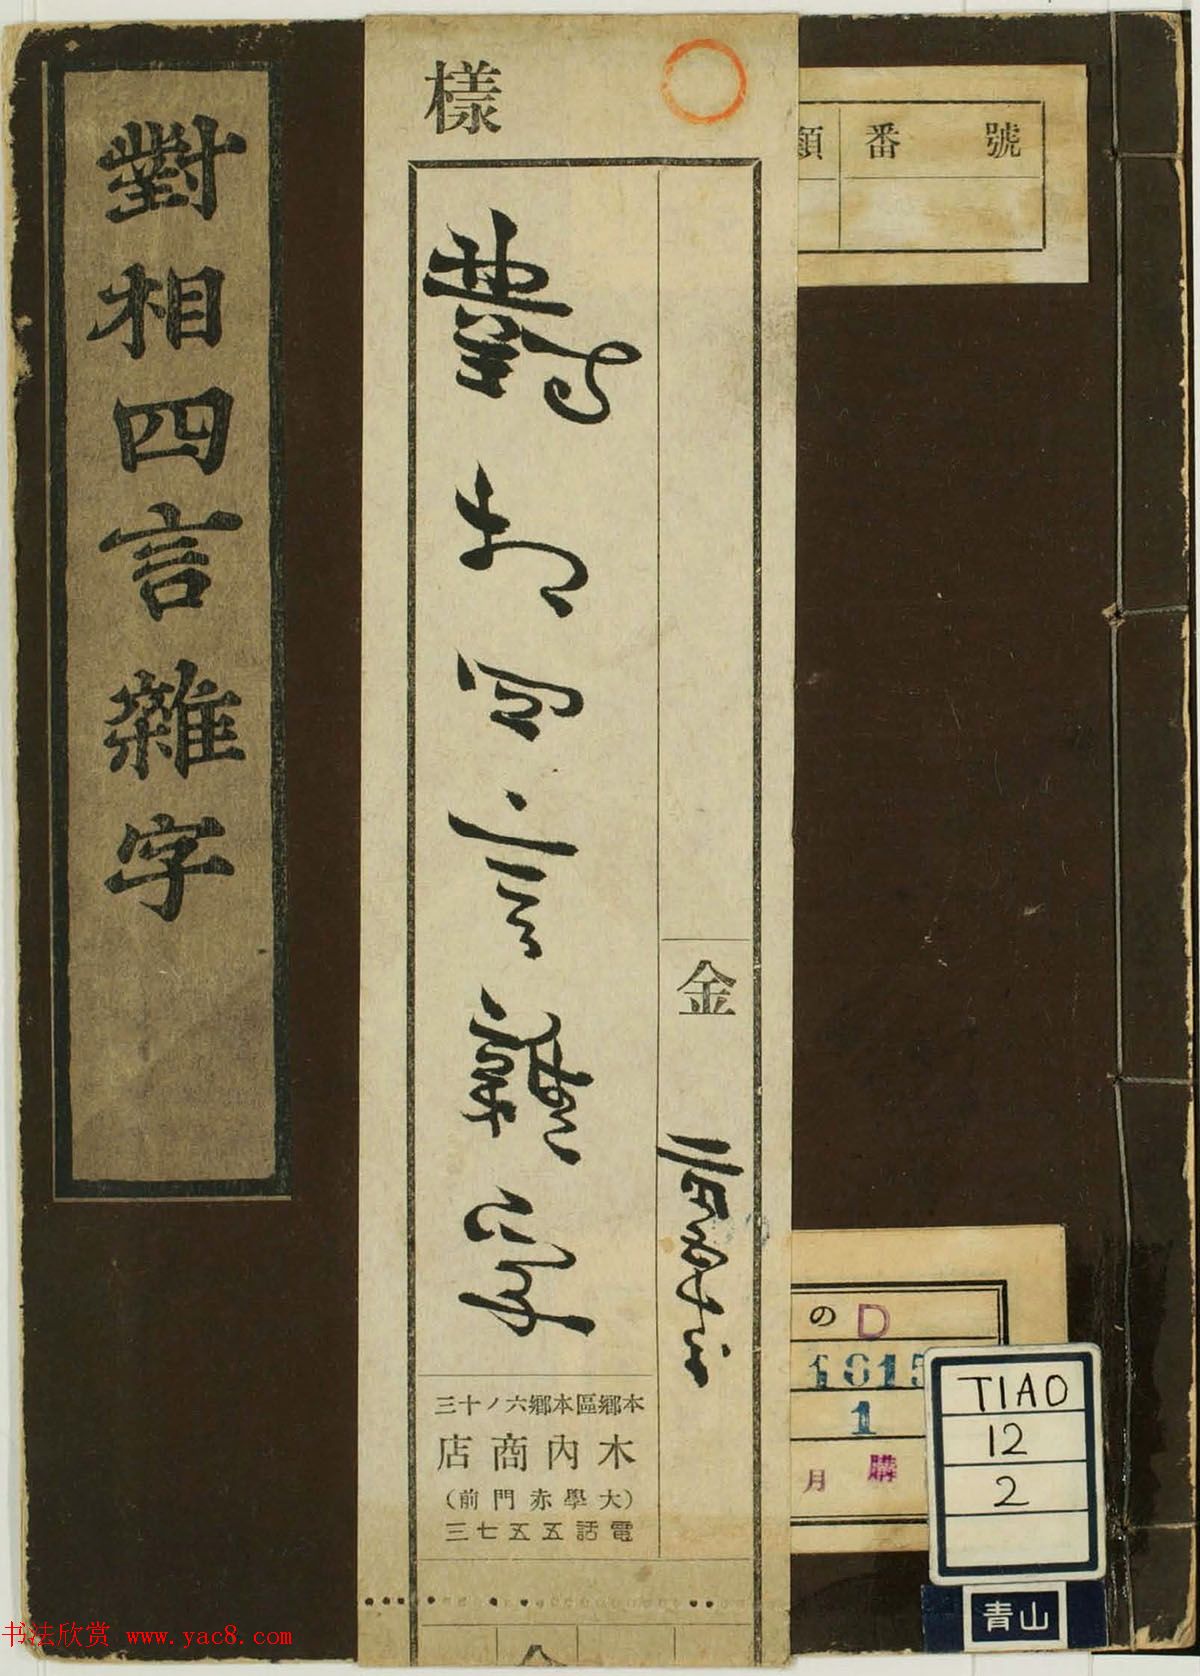 對相四言雜字
樣
對相四言雜字
金
本鄉區本鄉六ノ十三
木內商店
(大學赤門前)
電話五五七三
類
番號
の D
1615
1
月 購
TIAO
12
2
青山
书法欣赏 www.yac8.com